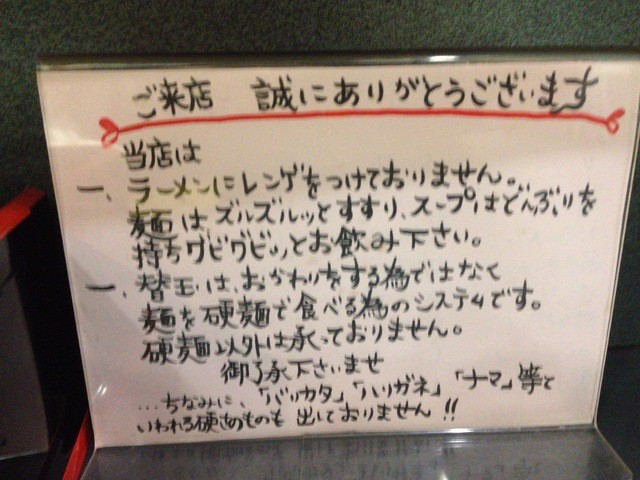 ご来店 誠にありがとうございます
当店は
一、ラーメンにレンゲをつけておりません。
麺は、ズルズルッとすすり、スープはどんぶりを
持ちグビグビッとお飲み下さい。
一、替玉は、おかわりをする為ではなく
麺を硬麺で食べる為のシステムです。
硬麺以外は承っておりません。
御了承下さいませ
…ちなみに、「バリカタ」「ハリガネ」「ナマ」等と
いわれる硬さのものも出しておりません!!